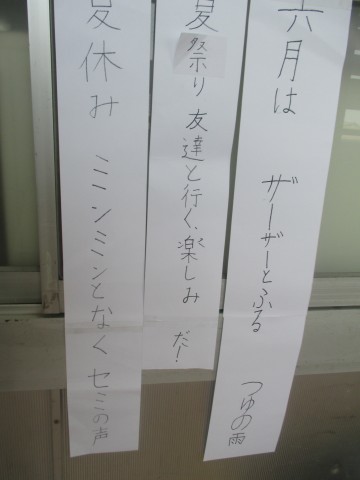 六月は ザーザーとふる つゆの雨
夏祭り 友達と行く、楽しみ だ!
夏休み ミンミンとなく セミの声